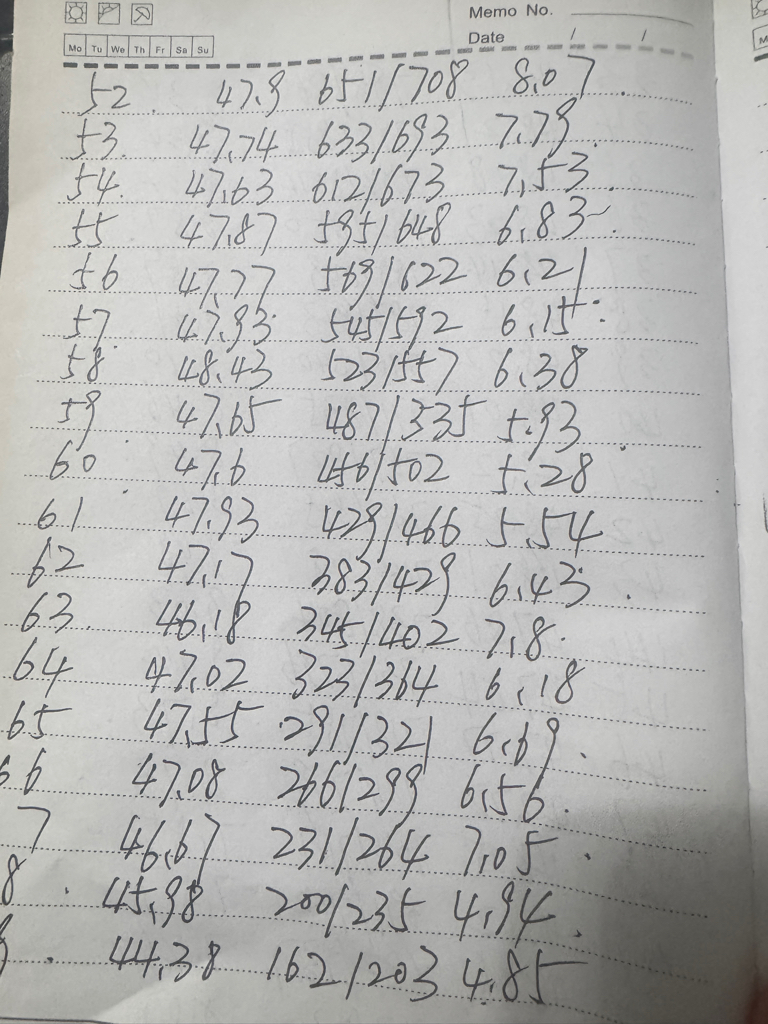 Memo No.
Date / /
Mo Tu We Th Fr Sa Su
52 47.9 651/708 8.07
53 47.74 633/693 7.79
54 47.63 612/673 7.53
55 47.87 595/648 6.83
56 47.77 569/622 6.21
57 47.93 545/592 6.15
58 48.43 523/557 6.38
59 47.65 487/535 5.93
60 47.6 456/502 5.28
61 47.93 429/466 5.54
62 47.17 383/429 6.43
63 46.18 345/402 7.8
64 47.02 323/364 6.18
65 47.55 291/321 6.69
66 47.08 266/299 6.56
7 46.67 231/264 7.05
8 45.98 200/235 4.94
9 44.38 162/203 4.85